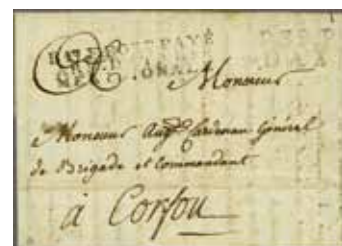 PORT PAYÉ
DAX
Monsieur
Monsieur Augte Cardenau Général
de Brigade et Commandant
à Corfou